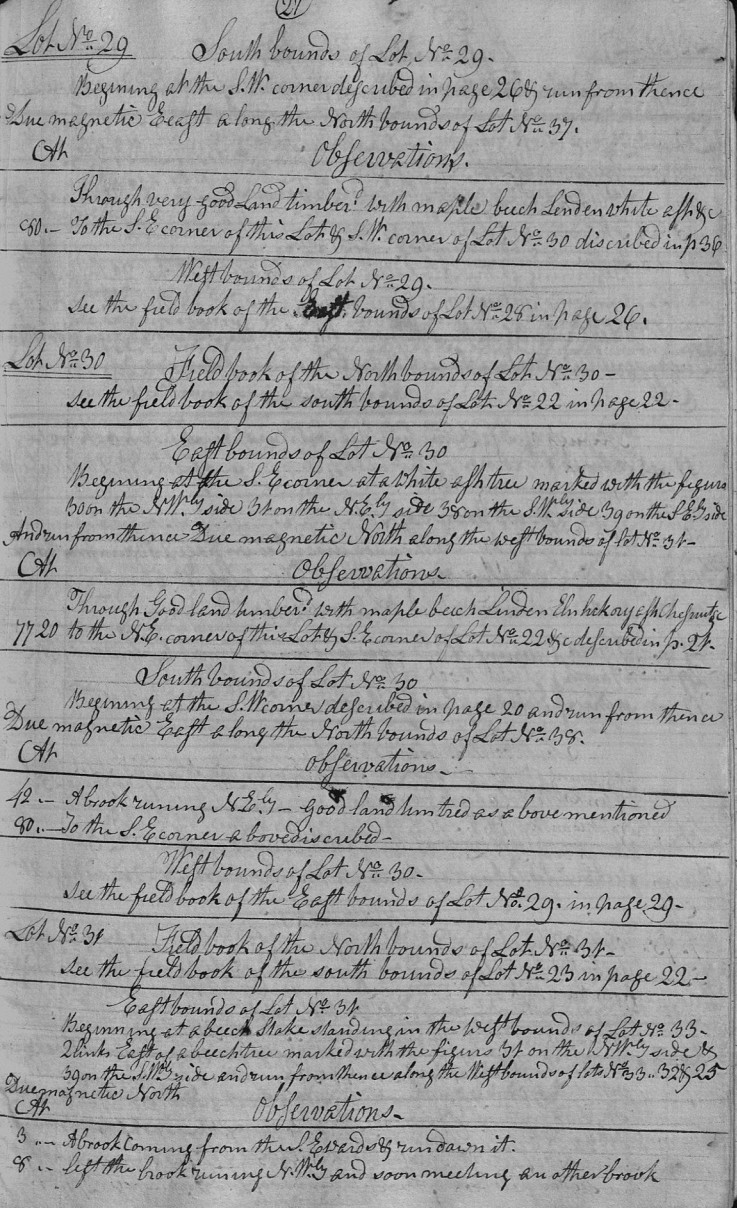 27
Lot No. 29 South bounds of Lot No. 29.
Begining at the S.W. corner described in page 26 & run from thence
Due magnetic Eeast along the North bounds of Lot No. 37.
Ch Observations.
Through very good Land timber.d with maple beech Lenden white ash &c
80.- To the S.E corner of this Lot & S.W. corner of Lot No. 30 discribed in p 36
West bounds of Lot No. 29.
see the field book of the East bounds of Lot No. 28 in page 26.
Lot No. 30 Field book of the North bounds of Lot No. 30-
see the field book of the south bounds of Lot No. 22 in page 22-
East bounds of Lot No. 30
Begining at the S.E corner at a white ash tree marked with the figure
30 on the N.W.ly side 31 on the N.E.ly side 38 on the S.W.ly side 39 on the S.E.ly side
And run from thence Due magnetic North along the west bounds of lot No. 31-
Ch Observations-
Through Good land timber.d with maple beech Linden Elm hickory ash Chesnut &c
77 20 to the N.E. corner of this Lot & S.E corner of Lot No. 22 &c described in p. 21-
South bounds of Lot No. 30
Begining at the S.W corner described in page 20 and run from thence
Due magnetic East along the North bounds of Lot No. 38.
Ch Observations-
42.- A brook runing N.E.ly- good land timbred as above mentioned
80.- To the S.E corner above discribed-
West bounds of Lot No. 30-
see the field book of the East bounds of Lot No. 29. in page 29-
Lot No. 31 Field book of the North bounds of Lot No. 31-
see the field book of the south bounds of Lot No. 23 in page 22-
East bounds of Lot No. 31
Beginning at a beech Stake standing in the west bounds of Lot No. 33-
2 links East of a beech tree marked with the figure 31 on the N.W.ly side &
39 on the S.W.ly side and run from thence along the West bounds of lots No. 33.. 32 & 25
Due magnetic North
Ch Observations-
3 .- A brook coming from the S.Ewards & run down it.
8 .- left the brook runing N.W.ly and soon meeting another brook